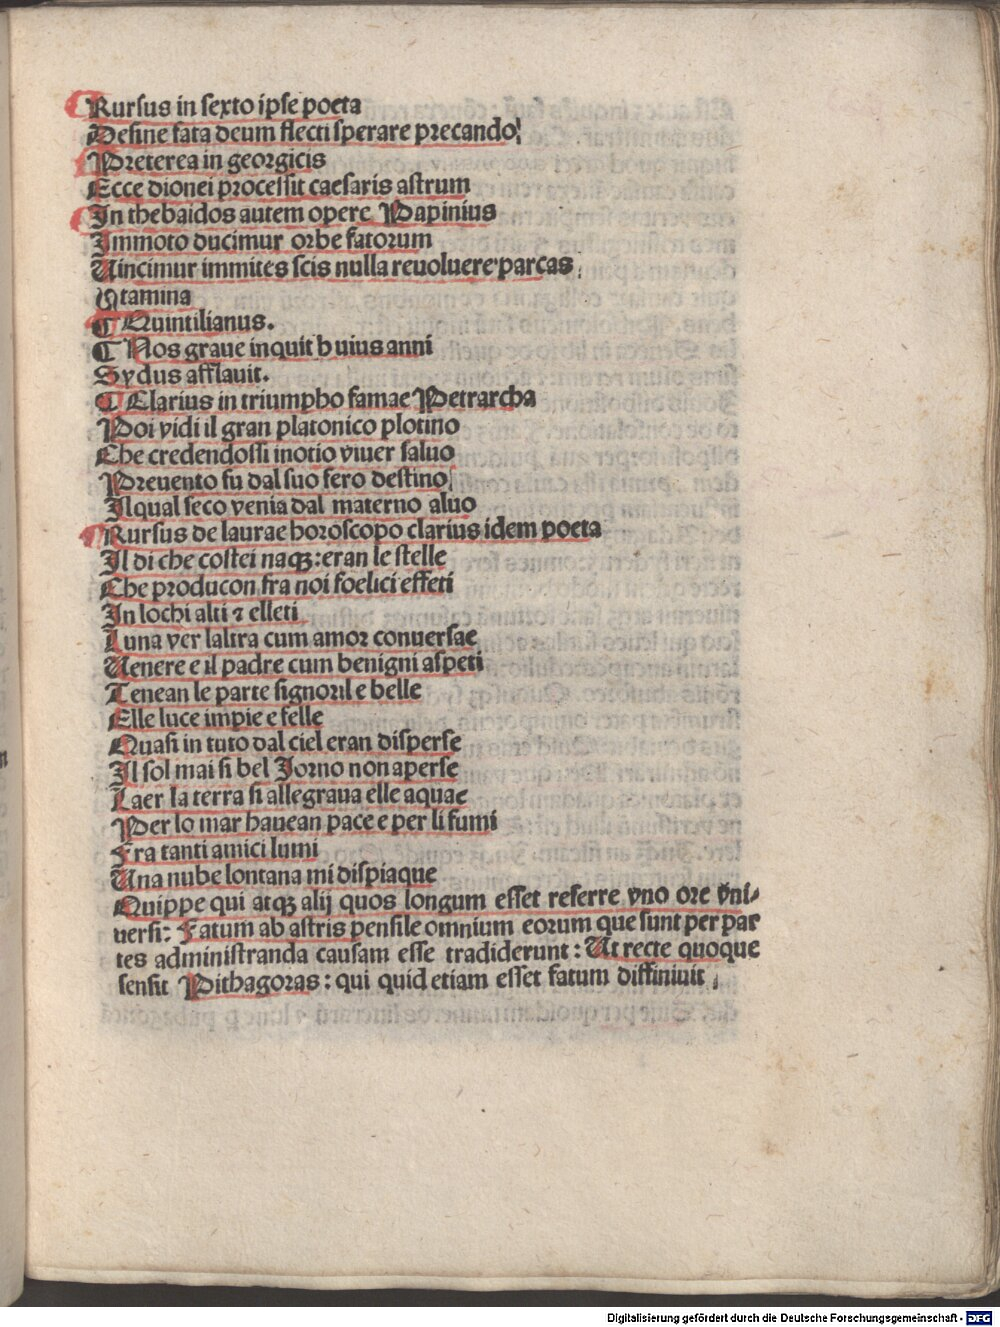 Rursus in sexto ipse poeta
Desine fata deum flecti sperare precando!
Preterea in georgicis
Ecce dionei processit caesaris astrum
In thebaidos autem opere Papinius
Immoto ducimur orbe fatorum
Uincimur immites scis nulla reuoluere parcas
Stamina
¶ Quintilianus.
¶ Nos graue inquit huius anni
Sydus afflauit.
¶ Clarius in triumpho famae Petrarcha
Poi vidi il gran platonico plotino
Che credendossi inotio viuer saluo
Preuento fu dal suo fero destino
Ilqual seco venia dal materno aluo
Rursus de laurae horoscopo clarius idem poeta
Il di che costei naqꝫ: eran le stelle
Che producon fra noi foelici effeti
In lochi alti ⁊ elleti
Luna ver laltra cum amor conuersae
Uenere e il padre cum benigni aspeti
Tenean le parte signoril e belle
Elle luce impie e felle
Quasi in tuto dal ciel eran disperse
Il sol mai si bel Jorno non aperse
Laer la terra si allegraua elle aquae
Per lo mar hauean pace e per li fumi
Fra tanti amici lumi
Una nube lontana mi dispiaque
Quippe qui atqꝫ alij quos longum esset referre vno ore vni-
uersi: Fatum ab astris pensile omnium eorum que sunt per par
tes administranda causam esse tradiderunt: Ut recte quoque
sensit Pithagoras: qui quid etiam esset fatum diffiniuit
Digitalisierung gefördert durch die Deutsche Forschungsgemeinschaft - DFG